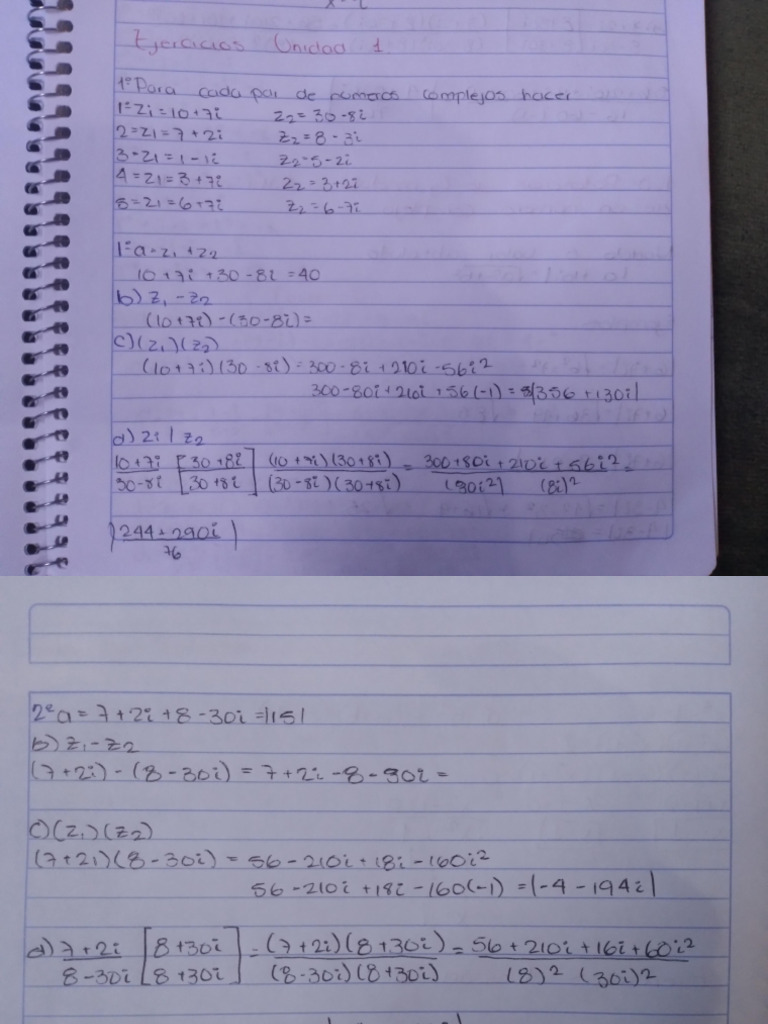 Ejercicios Unidad 1
1º Para cada par de numeros complejos hacer
1= Zi = 10 + 7i Z2 = 30 - 8i
2 = Z1 = 7 + 2i Z2 = 8 - 3i
3 = Z1 = 1 - 1i Z2 = 5 - 2i
4 = Z1 = 3 + 7i Z2 = 3 + 2i
5 = Z1 = 6 + 7i Z2 = 6 - 7i
1= a = Z1 + Z2
10 + 7i + 30 - 8i = 40
b) Z1 - Z2
(10 + 7i) - (30 - 8i) =
c) (Z1) (Z2)
(10 + 7i) (30 - 8i) = 300 - 8i + 210i - 56i²
300 - 80i + 210i + 56(-1) = |356 + 130i|
d) Zi / Z2
10 + 7i [30 + 8i] (10 + 7i) (30 + 8i) = 300 + 80i + 210i + 56i² =
30 - 8i [30 + 8i] (30 - 8i) (30 + 8i) (30i²) (8i)²
|244 + 290i|
76
2º a = 7 + 2i + 8 - 30i = |15|
b) Z1 - Z2
(7 + 2i) - (8 - 30i) = 7 + 2i - 8 - 30i =
c) (Z1) (Z2)
(7 + 2i) (8 - 30i) = 56 - 210i + 18i - 160i²
56 - 210i + 18i - 160(-1) = |-4 - 194i|
d) 7 + 2i [8 + 30i] = (7 + 2i) (8 + 30i) = 56 + 210i + 16i + 60i²
8 - 30i [8 + 30i] (8 - 30i) (8 + 30i) (8)² (30i)²